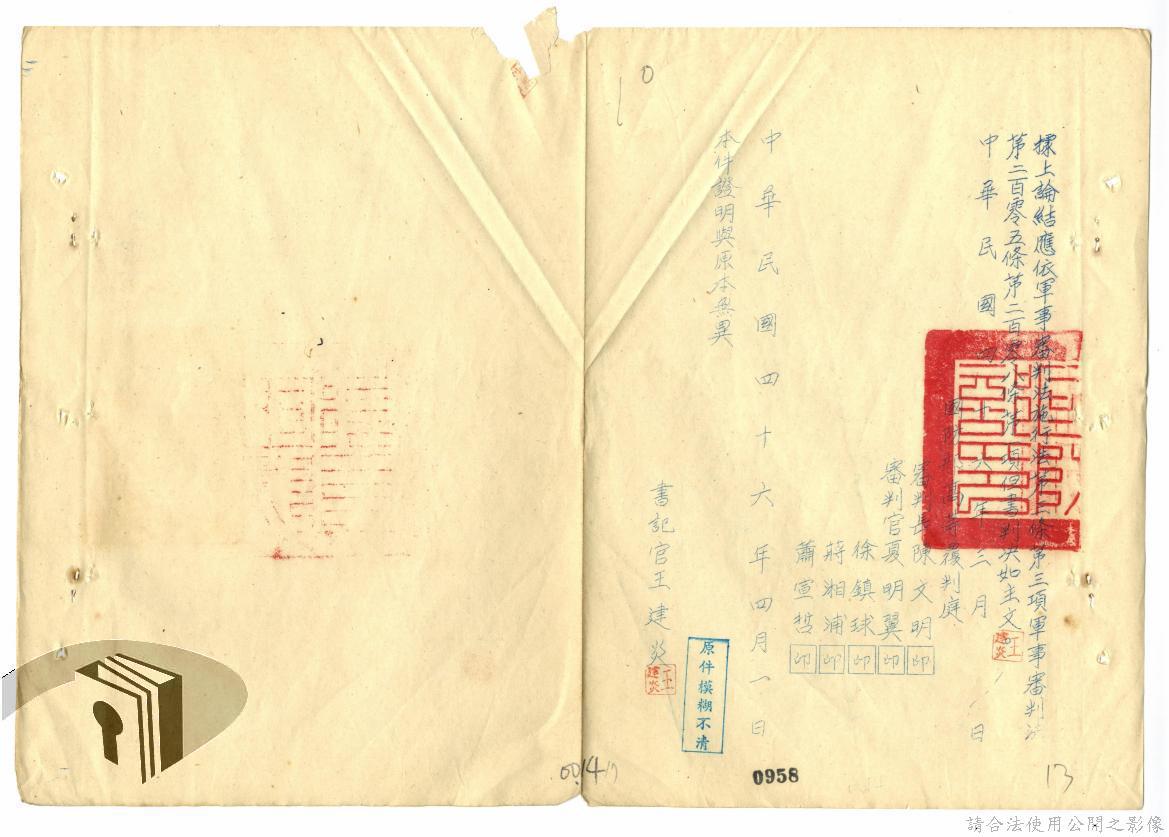 據上論結應依軍事審判法施行法第三條第三項軍事審判法
第二百零五條第二百零八條第一項但書判決如主文
中華民國四十六年三月 日
國防部高等覆判庭
審判長陳文明印
審判官夏明翼印
徐鎮球印
蔣湘浦印
蕭宣哲印
中華民國四十六年四月一日
本件證明與原本無異
書記官王建炎
王建炎
王建炎
原件模糊不清
0958
13
請合法使用公開之影像